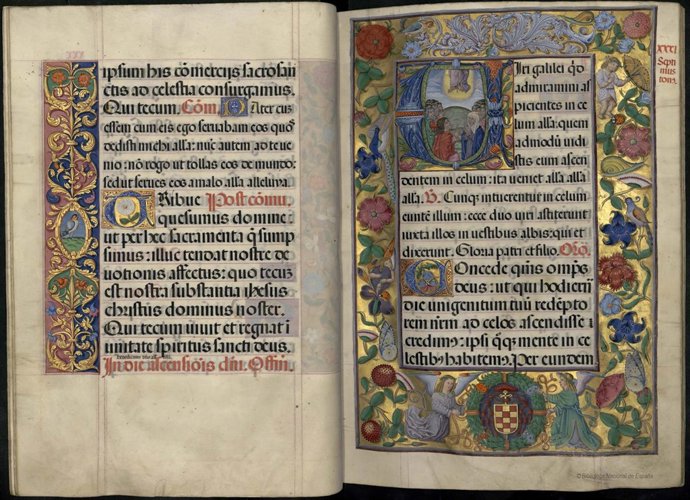 XXX
ipsum his cōmercijs sacrosan
ctus ad celestia consurgamus.
Qui tecum. Cōm. Ater cuȝ
essem cum eis ego seruabam eos quos
dedisti michi alla: nūc autem ad te ue
nio: nō rogo ut tollas eos de mundo:
sed ut serues eos a malo alla alleluya.
Tribue Post cōmu.
quesumus domine:
ut per hec sacramenta q̄ sump
simus: illuc tendat nostre de
uotionis affectus: quo tecuȝ
est nostra substantia ihesus
christus dominus noster.
Qui tecum uiuit et regnat ī
unitate spiritus sancti deus.
In die ascensiōis dn̄i. Offm̄.
XXXI
Septimus
tom9.
Uiri galilei q̄d
admiramini as
picientes in ce
lum alla: quem
admodū uidi
stis eum ascen
dentem in celum: ita ueniet alla alla
alla. V. Cunq̄ intuerentur in celum
euntē illum: ecce duo uiri astiterunt
iuxta illos in uestibus albis: qui et
dixerunt. Gloria patri et filio. Orō.
Concede qm̄s omp̄s
deus: ut qui hodierī
die unigenitum tuū redēpto
rem nrm̄ ad celos ascendisse
credim9: ipsi q̄q̄ mente in ce
lestib9 habitem9. Per eundem
© Biblioteca Nacional de España